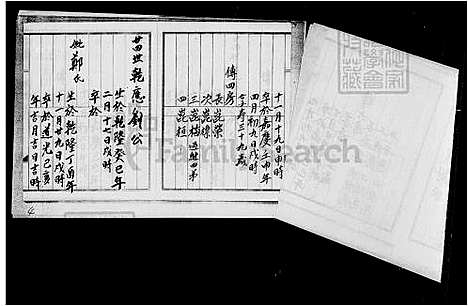 十一月十九日申時
卒於嘉慶壬申年
四月初九日戌時
享寿三十九歲
傳四房
長崑榮
次崑樟
三崑楠
四崑桓
廿四世乾應創公
生於乾隆癸巳年
二月十七日戌時
卒於
妣鄭氏
生於乾隆丁酉年
十一月廿九日戌時
卒於道光己亥
年吉月吉日吉時
FamilySearch